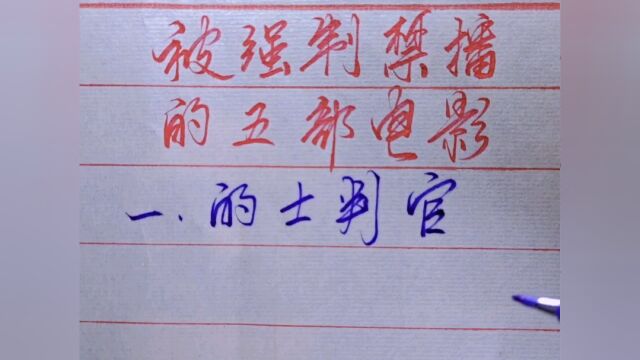 被强制禁播
的五部电影
一.的士判官